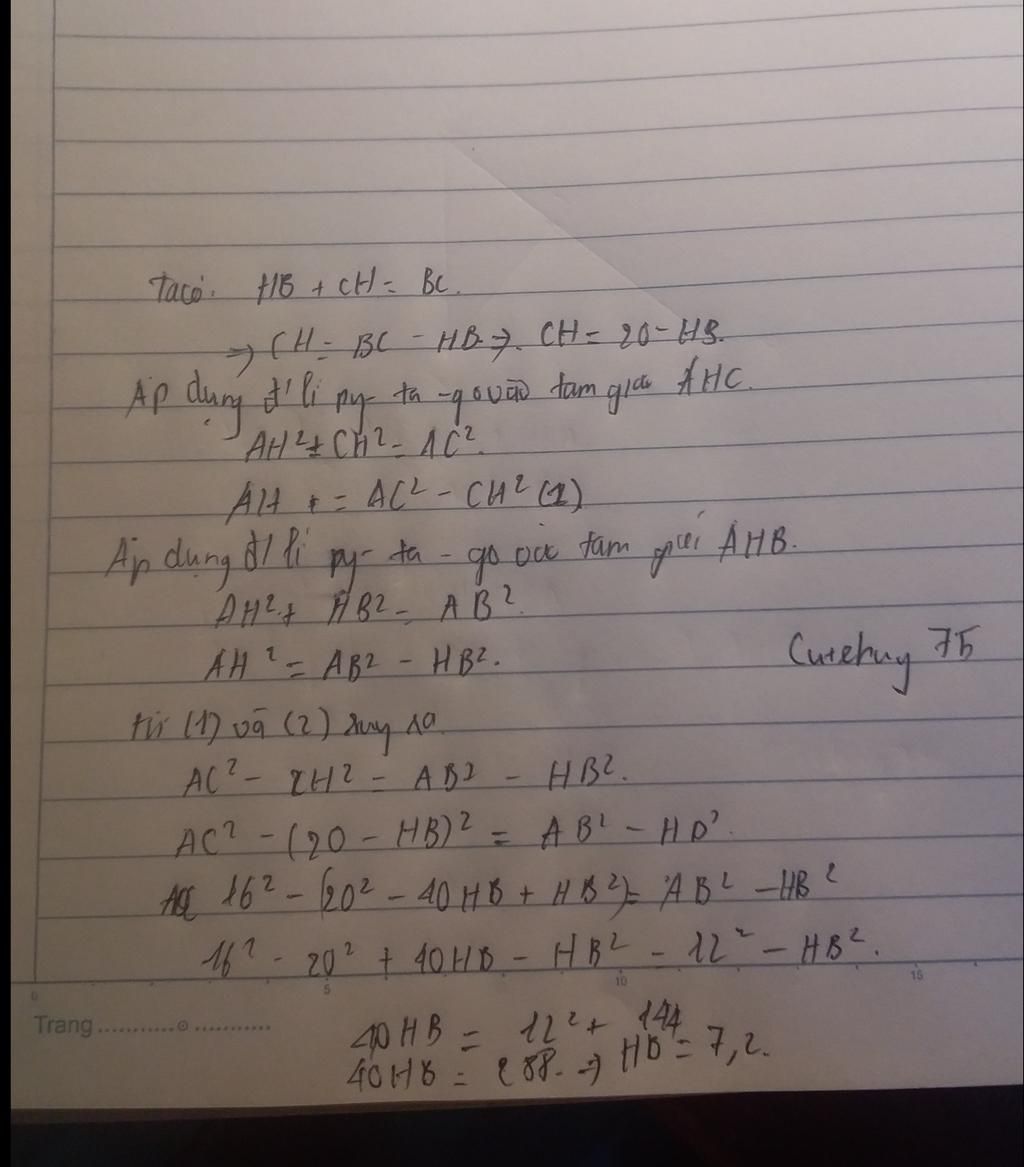 Ta có: HB + CH = BC.
=> CH = BC - HB => CH = 20 - HB.
Áp dụng đ/lí py-ta-go vào tam giác AHC.
AH² + CH² = AC².
AH = AC² - CH² (1)
Áp dụng đ/lí py-ta-go vào tam giác AHB.
AH² + HB² = AB².
AH² = AB² - HB².
Cutehuy 75
từ (1) và (2) suy ra
AC² - CH² = AB² - HB².
AC² - (20 - HB)² = AB² - HB².
16² - (20² - 40HB + HB²) = AB² - HB²
16² - 20² + 40HB - HB² = 12² - HB².
0 5 10 15
Trang
40HB = 12² + 144
40HB = 288. => HB = 7,2.